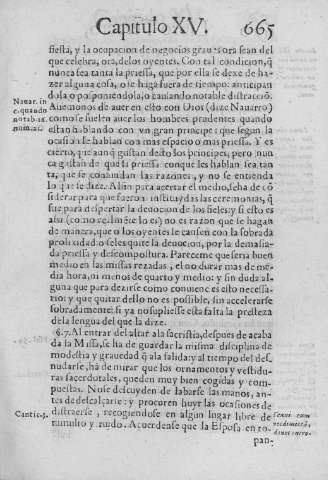 Capitulo XV. 665
fiesta, y la ocupacion de negocios graues ora sean del
que celebra, ora, de los oyentes. Con tal condicion, q̃
nunca sea tanta la priessa, que por ella se dexe de ha-
zer alguna cosa, o se haga fuera de tiempo: anticipan
dola, o posponiendola, o causando notable distraciõ.
Auemonos de auer en esto con Dios (dize Nauarro)
como se suelen auer los hombres prudentes quando
estan hablando con vn gran principe: que segun la
ocasion le hablan con mas espacio o mas priessa. Y es
cierto, que aunq̃ gustan desto los principes, pero nun
ca gustan de que la priessa con que les hablan sea tan
ta, que se confundan las razones, y no se entienda
lo que se dize. Assi para acertar el medio, se ha de cõ
siderar para que fueron instituydas las ceremonias, q̃
fue para despertar la deuocion de los fieles: y si esto es
assi (como realmẽte lo es) no es razon que se hagan
de manera, que o los oyentes se cansen con la sobrada
prolixidad o se les quite la deuocion, por la demasia-
da priessa y descompostura. Pareceme que seria buen
medio en las missas rezadas, el no durar mas de me-
dia hora, ni menos de quarto y medio: y sin duda al-
guna que para dezirse como conuiene es esto necessa-
rio: y que quitar dello no es possible, sin accelerarse
sobradamente: si ya no supliesse esta falta la presteza
de la lengua del que la dize.
67. Al entrar del altar a la sacristia, despues de acaba
da la Missa, se ha de guardar la misma disciplina de
modestia y grauedad q̃ a la salida: y al tiempo del des-
nudarse, ha de mirar que los ornamentos y vestidu-
ras sacerdotales, queden muy bien cogidas y com-
puestas. No se descuyden de labarse las manos, an-
tes de descalçarse: y procuren huyr las ocasiones de
distraerse, recogiendose en algun lugar libre de
tumulto y ruido. Acuerdense que la Esposa en to-
pan-
Nauar. in
c. quando
notab. 12.
num. 12.
Cantic. 3.